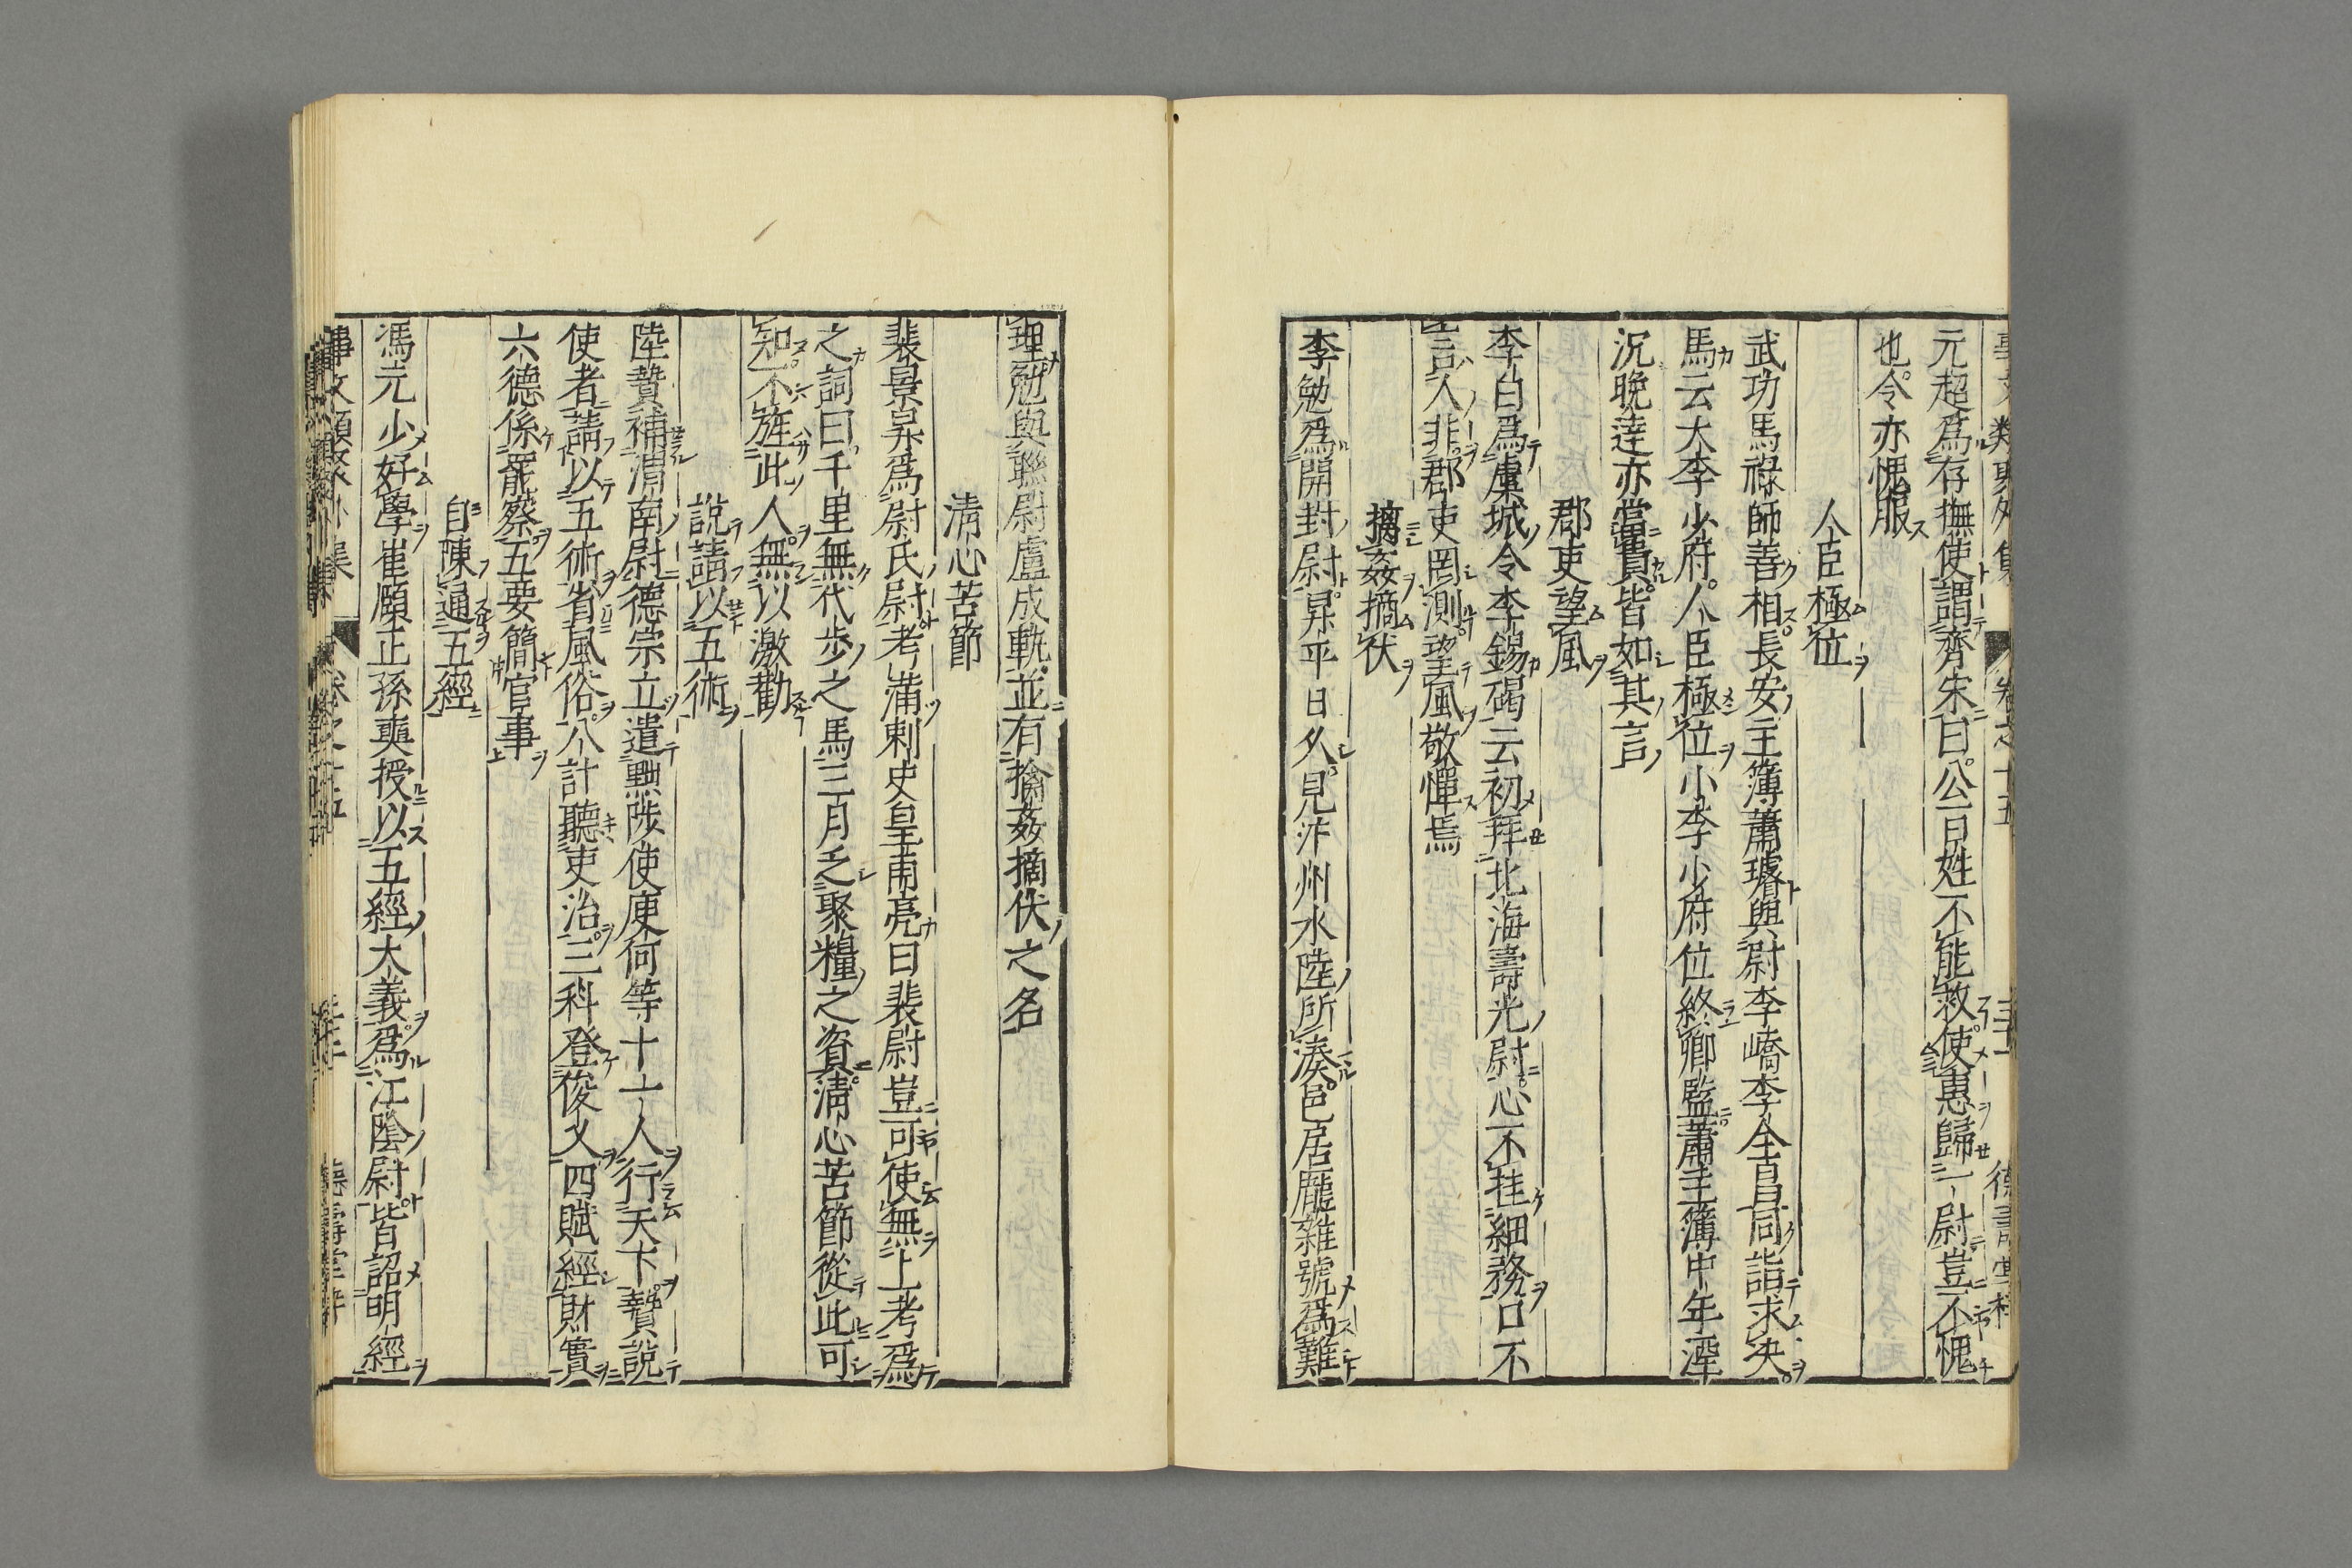 事文類聚外集 卷之十五 三十一 德壽堂梓
元超爲存撫使謂齊宋曰公百姓不能救使惠歸一尉豈不愧
也令亦愧服
人臣極位
武功馬祿師善相長安主簿蕭璿與尉李嶠李全昌同詣求決
馬云大李少府人臣極位小李少府位終卿監蕭主簿中年湮
沉晚達亦當貴皆如其言
郡吏望風
李白爲虞城令李錫碣云初拜北海壽光尉心不挂細務口不
言人非郡吏罔測望風敬憚焉
擒姦摘伏
李勉爲開封尉昇平日久見汴州水陸所湊邑居厖雜號爲難
理勉與聯尉盧成軌並有擒姦摘伏之名
清心苦節
裴景昇爲尉氏尉考滿刺史皇甫亮曰裴尉豈可使無上考爲
之詞曰千里無代步之馬三月乏聚糧之資清心苦節從此可
知不旌此人無以激勸
說請以五術
陸贄補渭南尉德宗立遣黜陟使庾何等十一人行天下贄說
使者請以五術省風俗八計聽吏治三科登俊乂四賦經財實
六德係罷瘵五要簡官事
自陳通五經
馮元少好學崔頤正孫奭授以五經大義爲江陰尉皆詔明經
事文類聚外集 卷之十五